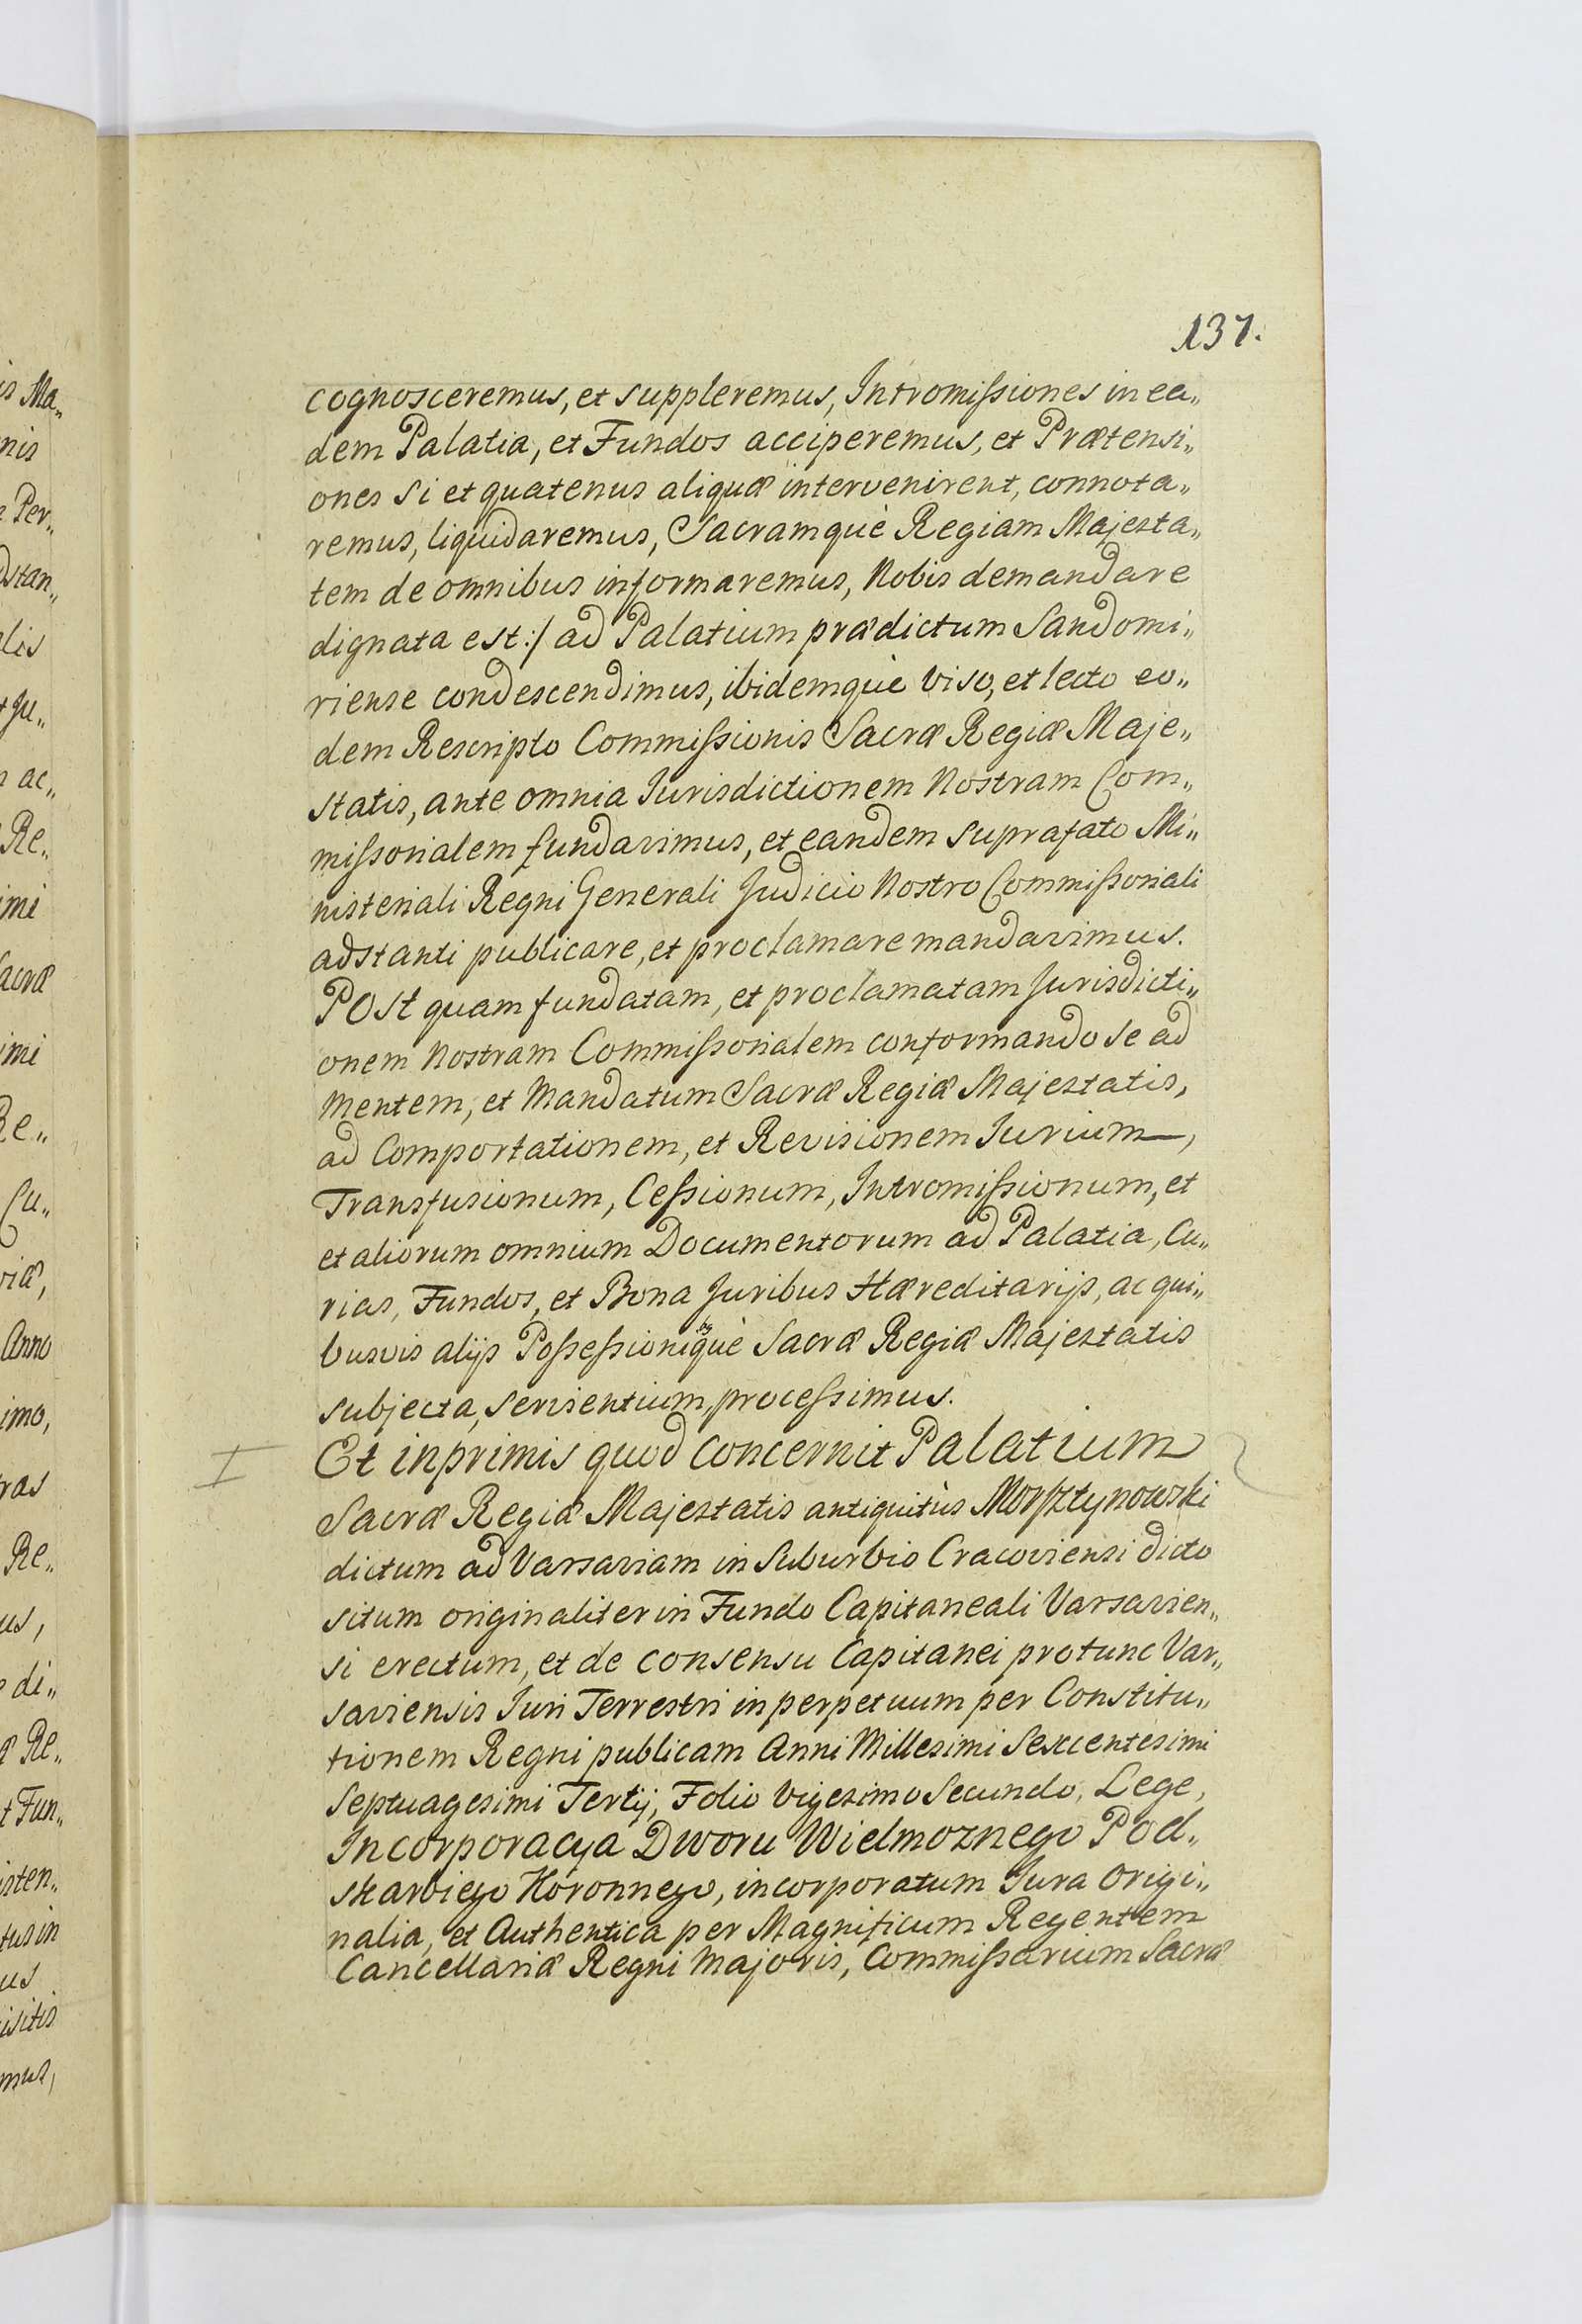 137.
cognosceremus, et suppleremus, Intromiſsiones in ea„
dem Palatia, et Fundos acciperemus, et Prætensi„
ones si et quatenus aliquæ intervenirent, connota„
remus, liquidaremus, Sacramquè Regiam Majesta„
tem de omnibus informaremus, Nobis demandare
dignata est:/ ad Palatium prædictum Sandomi„
riense condescendimus, ibidemquè viso, et lecto eo„
dem Rescripto Commiſsionis Sacræ Regiæ Maje„
statis, ante omnia Jurisdictionem Nostram Com„
miſsorialem fundavimus, et eandem suprafato Mi„
nisteriali Regni Generali Judicio Nostro Commiſsoriali
adstanti publicare, et proclamare mandavimus.
POst quam fundatam, et proclamatam Jurisdicti„
onem Nostram Commiſsorialem conformando se ad
Mentem, et Mandatum Sacræ Regiæ Majestatis,
ad Comportationem, et Revisionem Jurium,
Transfusionum, Ceſsionum, Intromiſsionum, et
et aliorum omnium Documentorum ad Palatia, Cu„
rias, Fundos, et Bona Juribus Hæreditarijs, ac qui„
busvis alijs Poſseſsioniquè Sacræ Regiæ Majestatis
subjecta, servientium, proceſsimus.
I Et inprimis quod concernit Palatium
Sacræ Regiæ Majestatis antiquitùs Morſztynowski
dictum ad Varsaviam in Suburbio Cracoviensi dicto
situm originaliter in Fundo Capitaneali Varsavien„
si erectum, et de consensu Capitanei protunc Var„
saviensis Juri Terrestri inperpetuum per Constitu„
tionem Regni publicam Anni Millesimi Sexcentesimi
Septuagesimi Tertij, Folio Vigesimo Secundo, Lege,
Incorporacya Dworu Wielmoznego Pod„
skarbiego Koronnego, incorporatum Jura Origi„
nalia, et Authentica per Magnificum Regentem
Cancellariæ Regni Majoris, Commiſsarium Sacræ